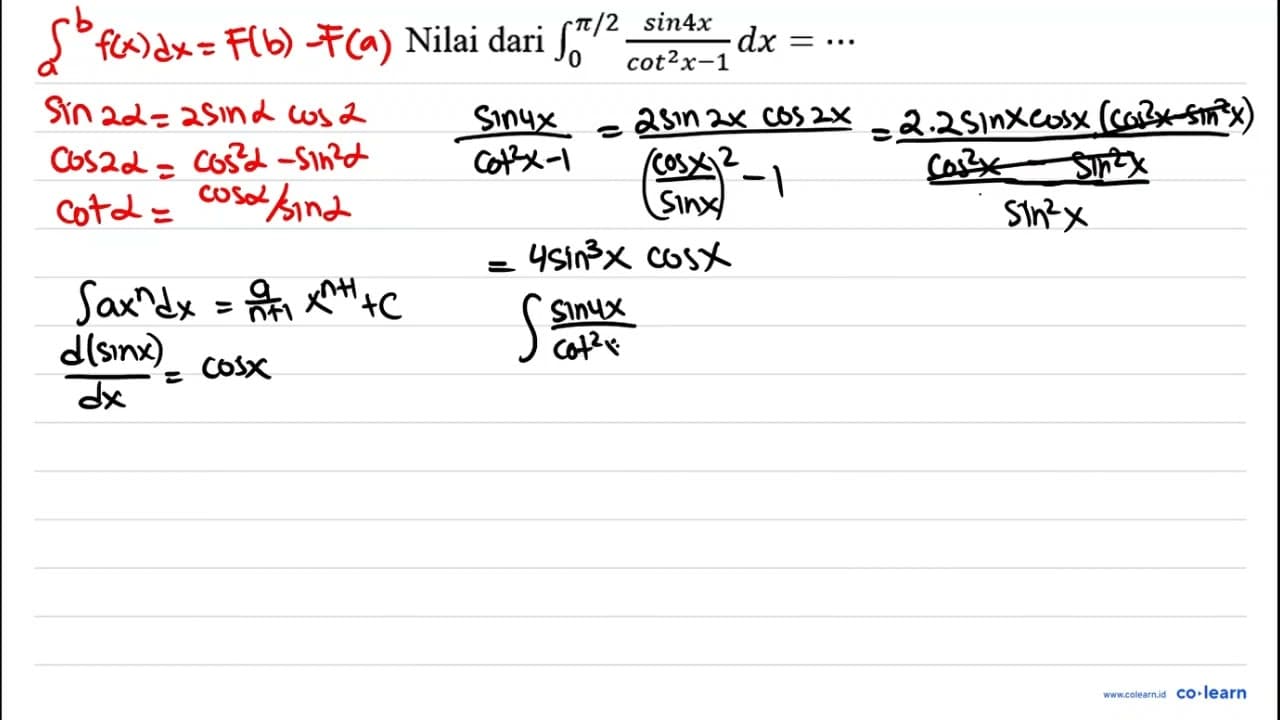 ∫ₐᵇ f(x) dx = F(b) - F(a) Nilai dari ∫₀^{π/2} sin4x / (cot²x−1) dx = ⋯
sin 2α = 2 sin α cos α
cos 2α = cos²α - sin²α
cot α = cos α / sin α
sin4x / (cot²x-1) = 2 sin 2x cos 2x / ((cosx/sinx)² - 1) = 2.2 sinx cosx (cos²x - sin²x) / ((cos²x - sin²x) / sin²x)
= 4 sin³x cosx
∫axⁿdx = a/(n+1) xⁿ⁺¹ + C
d(sinx)/dx = cosx
∫ sin4x / cot²x
www.colearn.id co·learn